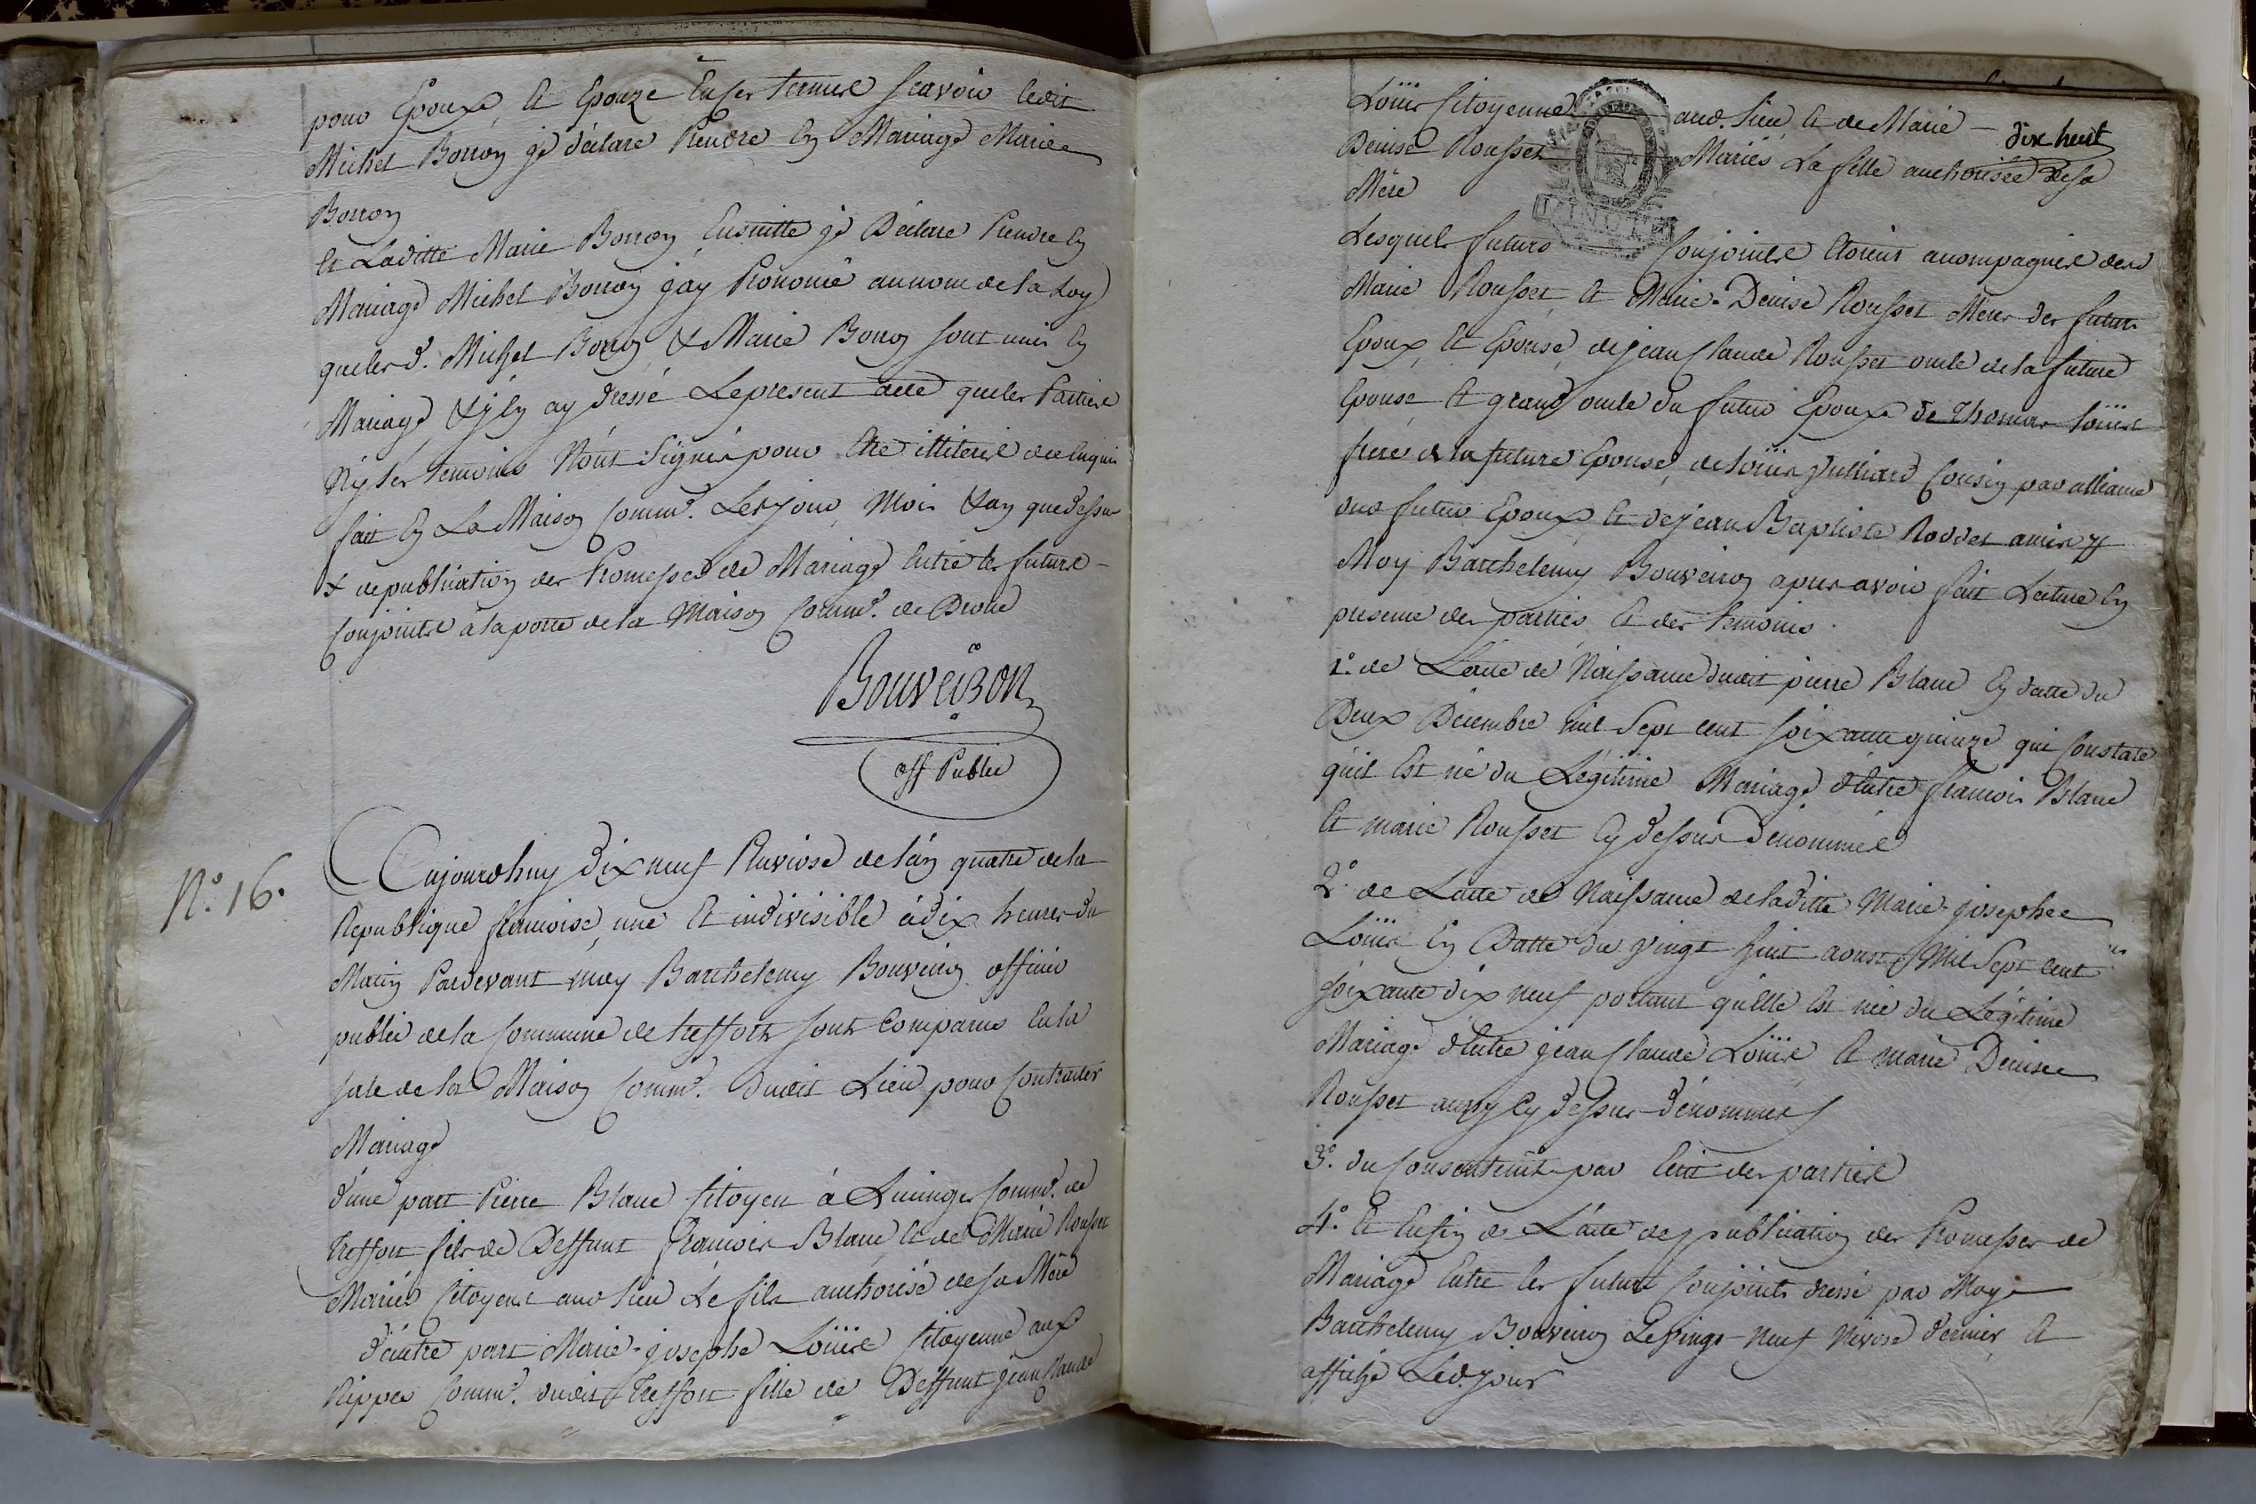 pour Epoux, et Epouze En ces termes scavoir ledit
Michel Borron je déclare Prendre En Mariage Marie
Borron
Et Laditte Marie Borron Ensuitte je Déclare Prendre En
Mariage Michel Borron jay Prononcé au nom de la Loy
que lesd. Michel Borron & Marie Borron sont unis En
Mariage & j'En ay dressé Le présent acte que les Parties
Ny les temoins N'ont Signés pour Etre illiterés de ce Enquis
fait En La Maison Comm.e Les jour, Mois & an que dessus
& de publication des Promesses de Mariage Entre les futurs
Conjoints à la porte de la Maison Comm.e de
Bouveiron
off Public
N.o 16.
Aujourdhuy dix neuf Pluviose de l'an quatre de la
Republique francoise, une Et indivisible à dix heures du
Matin Pardevant moy Barthelemy Bouveiron officier
public de la Commune de treffort sont Comparus En la
sale de la Maison Comm.e dudit Lieu pour Contracter
Mariage
d'une part Pierre Blanc Citoyen à Lucinges Comm.e de
treffort fils de Deffunt francois Blanc Et de Marie Rousset
Mariés Citoyens aud lieu Le fils authorisé de sa Mère
d'autre part Marie-josephe Loüis Citoyenne aux
Rippes Comm.e dudit Treffort fille de Deffunt jean Claude
dix huit
Loüis Citoyenne aud. lieu Et de Marie
Denise Rousset Mariés La fille authorisée de sa
Mère
Lesquels futurs Conjoints Etoient accompagnés de
Marie Rousset Et Marie-Denise Rousset Meres des futurs
Epoux Et Epouse, de jean Claude Rousset oncle de la future
Epouse Et grand oncle du futur Epoux de Thomas Loüis
frere de la future Epouse, de loüis julliard Cousin par alliance
dud futur Epoux Et de jean Baptiste Roddet amis
Moy Barthelemy Bouveiron apres avoir fait Lecture En
presence des parties Et des temoins
1.o de L'acte de Naissance dudit pierre Blanc En datte du
Deux Décembre mil Sept cent soixante quinze qui Constate
qu'il Est né du Légitime Mariage d'Entre francois Blanc
Et marie Rousset Cy dessus dénommés
2.o de L'acte de Naissance de laditte Marie-josephe
Loüis En Datte du vingt huit aoust Mil Sept cent
soixante dix neuf portant qu'elle Est née du Légitime
Mariage d'Entre jean Claude Loüis Et marie Denise
Rousset aussy Cy dessus dénommés
3.o du Consentem.t par Ecrit des parties
4.o Et Enfin de L'acte de publication des Promesses de
Mariage Entre les futurs Conjoints dressé par Moy
Barthelemy Bouveiron Le vingt Neuf Nivose dernier, Et
affiché Led. jour